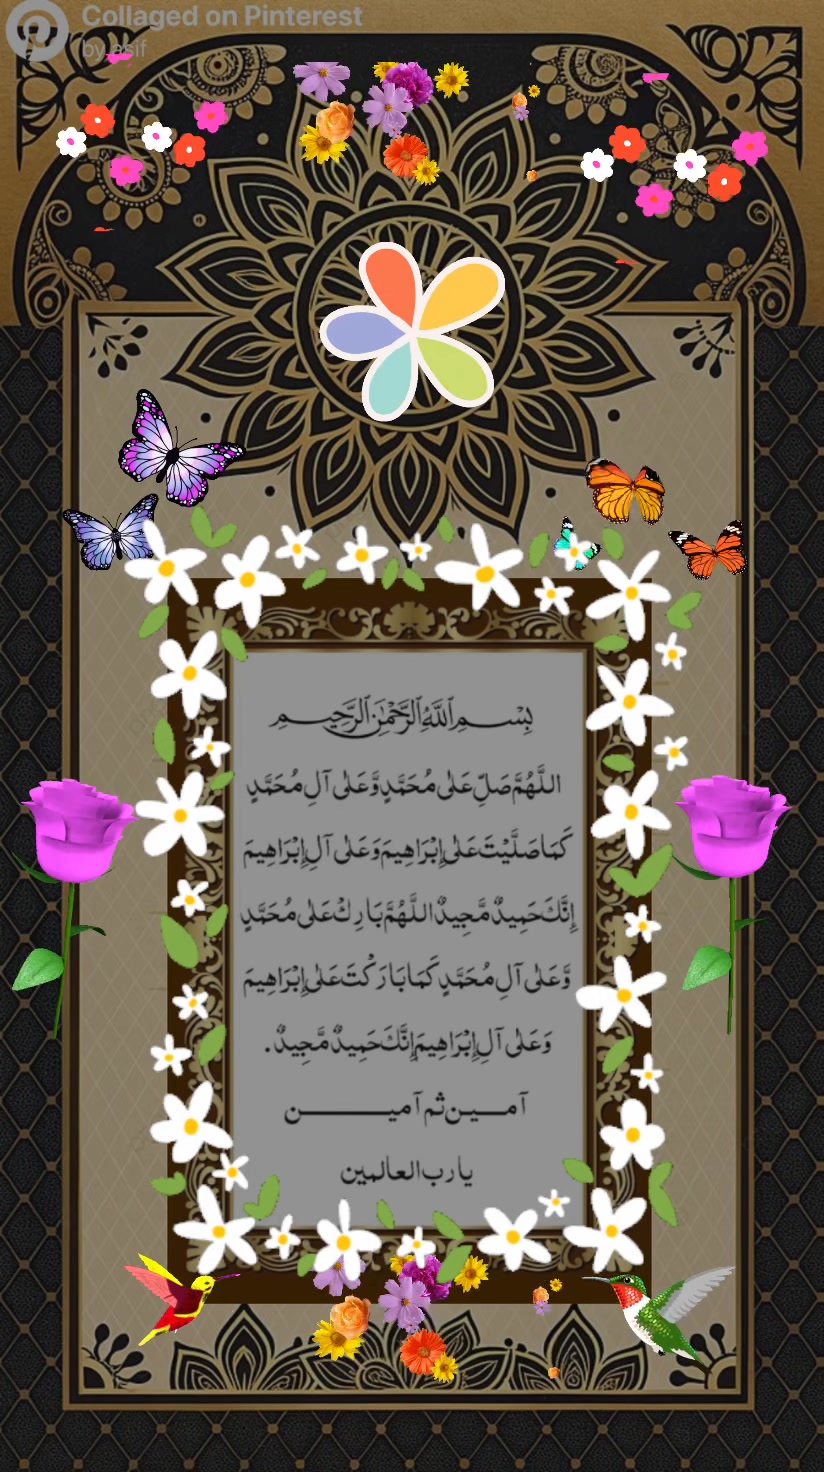 Collaged on Pinterest
by asif
بِسْمِ اللَّهِ الرَّحْمَٰنِ الرَّحِيمِ
اللَّهُمَّ صَلِّ عَلٰى مُحَمَّدٍ وَّعَلٰى آلِ مُحَمَّدٍ
كَمَا صَلَّيْتَ عَلٰى إِبْرَاهِيمَ وَعَلٰى آلِ إِبْرَاهِيمَ
إِنَّكَ حَمِيدٌ مَّجِيدٌ اللَّهُمَّ بَارِكْ عَلٰى مُحَمَّدٍ
وَّعَلٰى آلِ مُحَمَّدٍ كَمَا بَارَكْتَ عَلٰى إِبْرَاهِيمَ
وَعَلٰى آلِ إِبْرَاهِيمَ إِنَّكَ حَمِيدٌ مَّجِيدٌ.
آمـــين ثم آميـــــــــن
يا رب العالمين